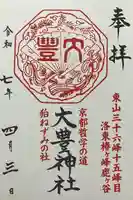 奉拝
東山三十六峰十五峰目
洛東椿ヶ峰鹿ヶ谷
大豊
京都哲学の道
狛ねずみの社
大豊神社
令和七年四月三日